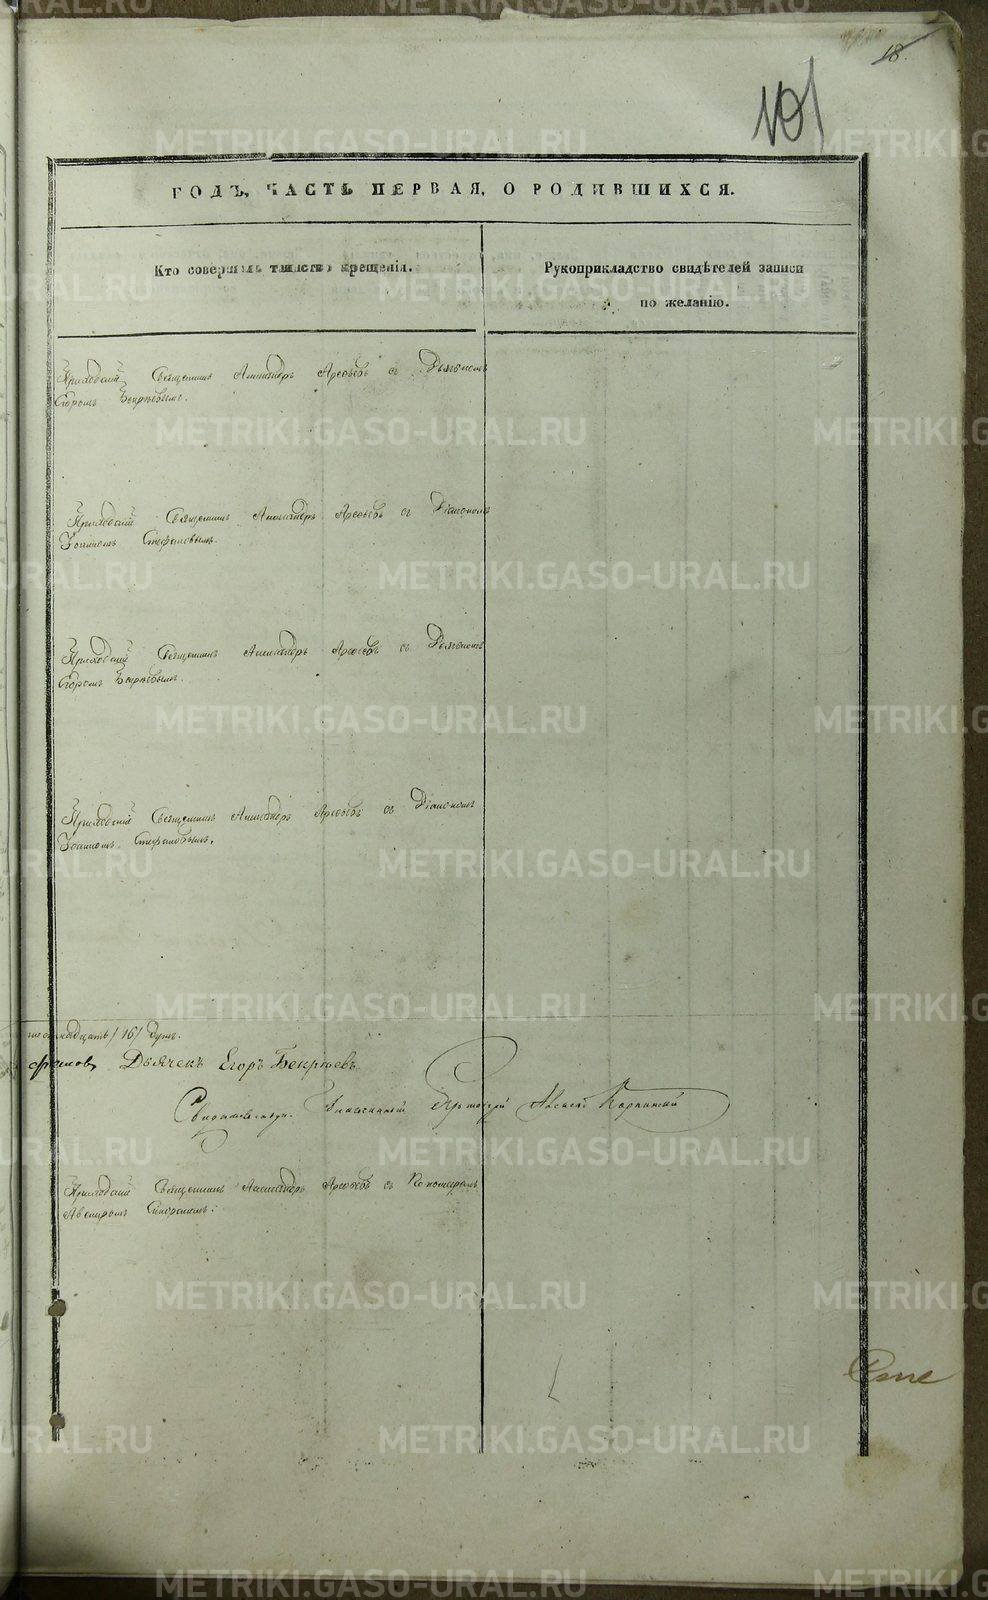 18.
101
ГОДЪ, ЧАСТЬ ПЕРВАЯ, О РОДИВШИХСЯ.
Кто совершалъ таинство крещенія.
Рукоприкладство свидѣтелей записи
по желанію.
Приходский Священникъ Александръ Арефьевъ съ Дьячкомъ
Егоромъ Бекрѣевымъ.
Приходский Священникъ Александръ Арефьевъ съ Діакономъ
Іоанномъ Стефановымъ.
Приходский Священникъ Александръ Арефьевъ съ Дьячкомъ
Егоромъ Бекрѣевымъ.
Приходский Священникъ Александръ Арефьевъ съ Діакономъ
Іоанномъ Стефановымъ.
/16/ душъ.
Дьячекъ Егоръ Бекрѣевъ
Алексѣй
Приходский Священникъ Александръ Арефьевъ съ Пономаремъ
METRIKI.GASO-URAL.RU